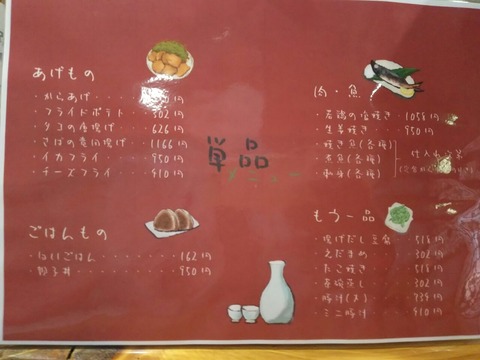 単品
メニュー
あげもの
・からあげ 950円
・フライドポテト 302円
・タコの唐揚げ 626円
・さばの竜田揚げ 1166円
・イカフライ 950円
・チーズフライ 410円
ごはんもの
・白いごはん 162円
・親子丼 950円
肉・魚
・若鶏の塩焼き 1058円
・生姜焼き 950円
・焼き魚(各種)
・煮魚(各種)
・刺身(各種)
もう一品
・揚げだし豆腐 518円
・えだまめ 302円
・たこ焼き 518円
・茶碗蒸し 302円
・豚汁(大) 734円
・ミニ豚汁 410円